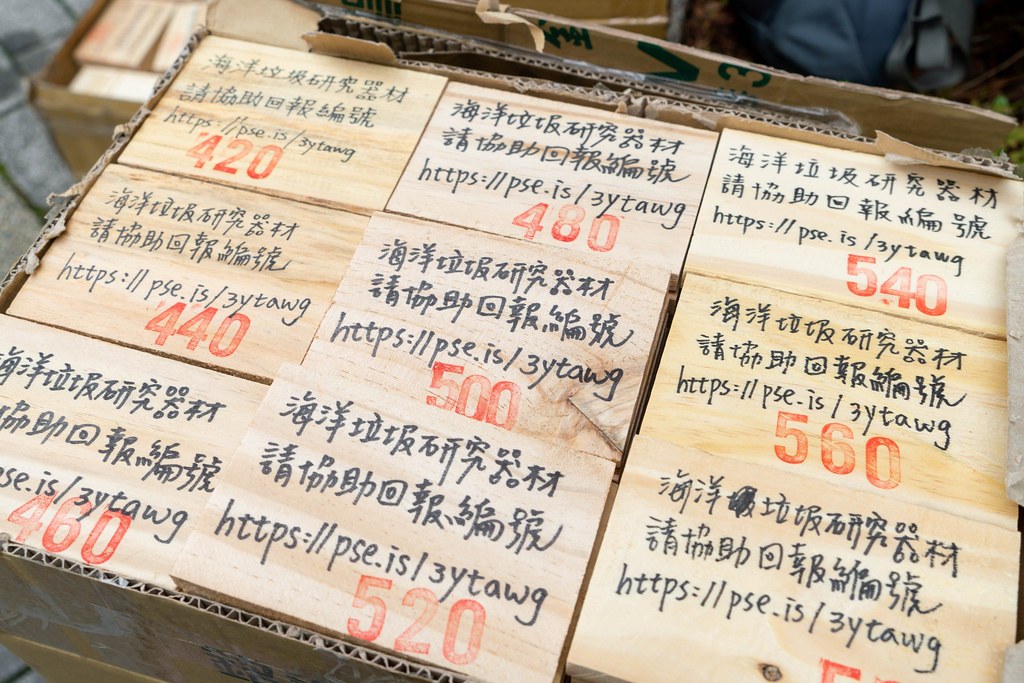 海洋垃圾研究器材
請協助回報編號
https://pse.is/3ytawg
420
海洋垃圾研究器材
請協助回報編號
https://pse.is/3ytawg
440
海洋垃圾研究器材
協助回報編號
pse.is/3ytawg
460
海洋垃圾研究器材
請協助回報編號
https://pse.is/3ytawg
480
海洋垃圾研究器材
請協助回報編號
https://pse.is/3ytawg
500
海洋垃圾研究器材
請協助回報編號
https://pse.is/3ytawg
520
海洋垃圾研究器材
請協助回報編號
https://pse.is/3ytawg
540
海洋垃圾研究器材
請協助回報編號
https://pse.is/3ytawg
560
海洋垃圾研究器材
請協助回報編號
https://pse.is/3ytawg